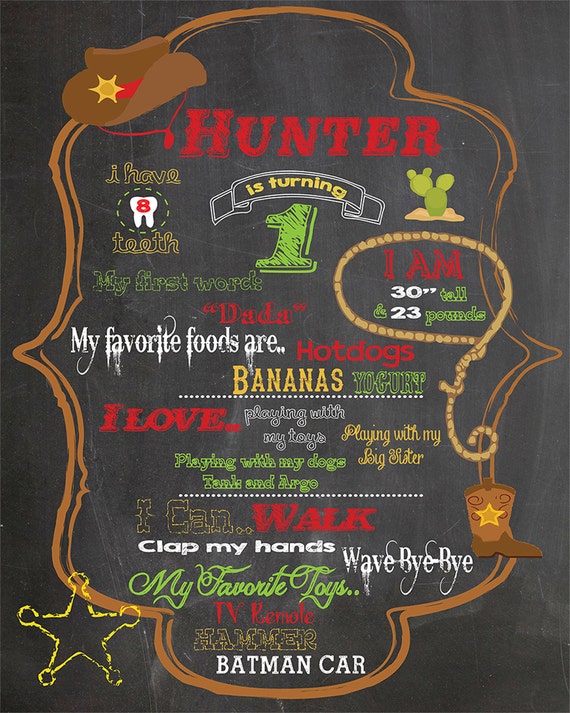 HUNTER
i have
8
teeth
is turning
1
I AM
30” tall
& 23 pounds
My first word:
“Dada”
My favorite foods are..
Hotdogs
BANANAS YOGURT
I LOVE..
playing with
my toys
Playing with my
Big Sister
Playing with my dogs
Tank and Argo
I Can..WALK
Clap my hands
Wave Bye-Bye
My Favorite Toys..
TV Remote
HAMMER
BATMAN CAR